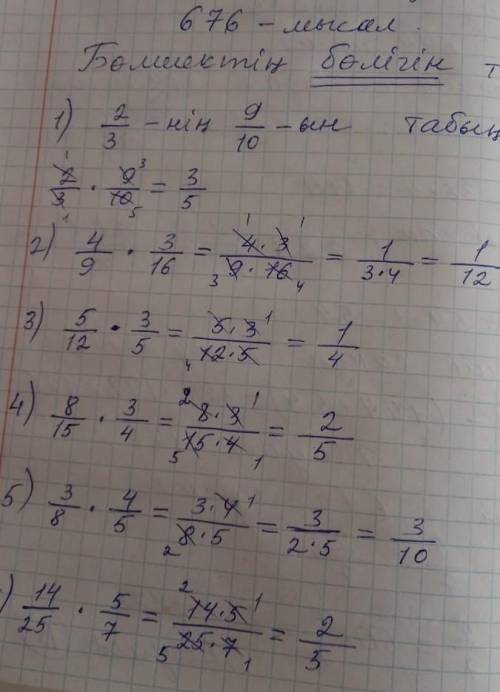 676 - мысал.
Бөлшектің бөлігін т
1) 2/3 - нің 9/10 - ын табың
2/3 · 9/10 = 3/5
2) 4/9 · 3/16 = 4·3/9·16 = 1/3·4 = 1/12
3) 5/12 · 3/5 = 5·3/12·5 = 1/4
4) 8/15 · 3/4 = 8·3/15·4 = 2/5
5) 3/8 · 4/5 = 3·4/8·5 = 3/2·5 = 3/10
) 14/25 · 5/7 = 14·5/25·7 = 2/5